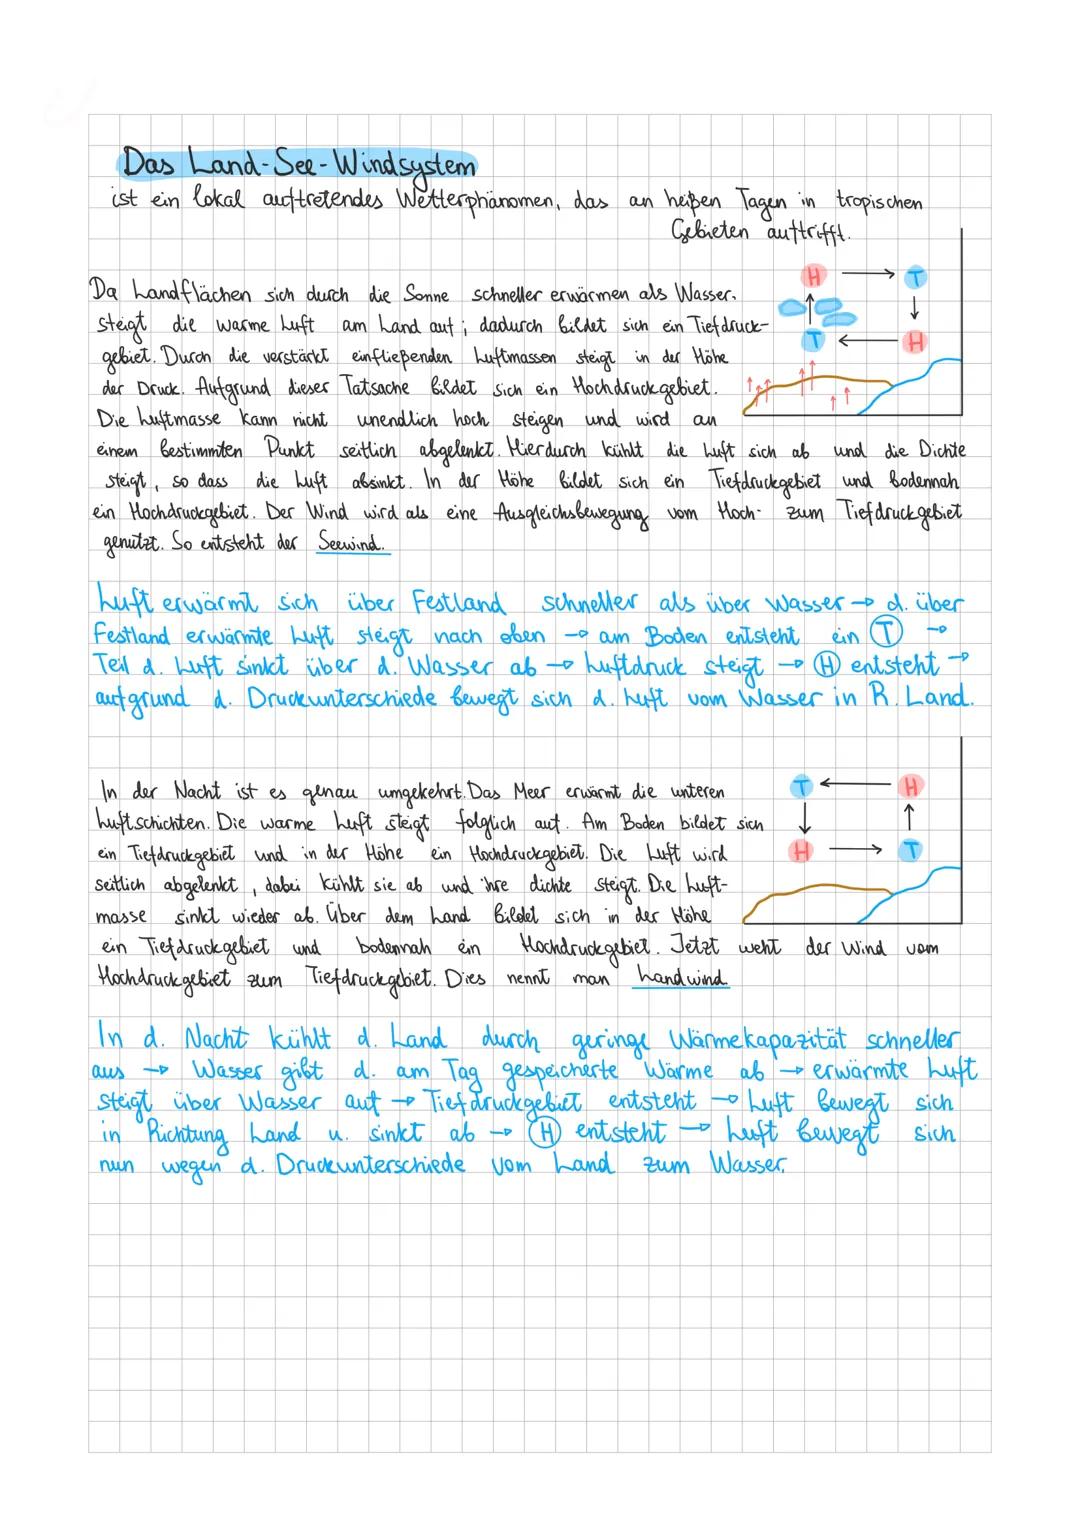 Das Land-See-Windsystem
ist ein lokal auftretendes Wetterphänomen, das an heißen Tagen in tropischen
Gebieten auftrifft.
H → T
Da Landflächen sich durch die Sonne schneller erwärmen als Wasser,
steigt die warme Luft am Land auf; dadurch bildet sich ein Tiefdruck-
T ← H
gebiet. Durch die verstärkt einfließenden Luftmassen steigt in der Höhe
der Druck. Aufgrund dieser Tatsache bildet sich ein Hochdruckgebiet.
Die Luftmasse kann nicht unendlich hoch steigen und wird an
einem bestimmten Punkt seitlich abgelenkt. Hierdurch kühlt die Luft sich ab und die Dichte
steigt, so dass die Luft absinkt. In der Höhe bildet sich ein Tiefdruckgebiet und bodennah
ein Hochdruckgebiet. Der Wind wird als eine Ausgleichsbewegung vom Hoch- zum Tiefdruckgebiet
genutzt. So entsteht der Seewind.
Luft erwärmt sich über Festland schneller als über Wasser → d. über
Festland erwärmte Luft steigt nach oben → am Boden entsteht ein T →
Teil d. Luft sinkt über d. Wasser ab → Luftdruck steigt → H entsteht →
aufgrund d. Druckunterschiede bewegt sich d. Luft vom Wasser in R. Land.
T ← H
In der Nacht ist es genau umgekehrt. Das Meer erwärmt die unteren
Luftschichten. Die warme Luft steigt folglich auf. Am Boden bildet sich
H → T
ein Tiefdruckgebiet und in der Höhe ein Hochdruckgebiet. Die Luft wird
seitlich abgelenkt, dabei kühlt sie ab und ihre dichte steigt. Die Luft-
masse sinkt wieder ab. Über dem Land bildet sich in der Höhe
ein Tiefdruckgebiet und bodennah ein Hochdruckgebiet. Jetzt weht der Wind vom
Hochdruckgebiet zum Tiefdruckgebiet. Dies nennt man Landwind.
In d. Nacht kühlt d. Land durch geringe Wärmekapazität schneller
aus → Wasser gibt d. am Tag gespeicherte Wärme ab → erwärmte Luft
steigt über Wasser auf → Tiefdruckgebiet entsteht → Luft bewegt sich
in Richtung Land u. sinkt ab → H entsteht → Luft bewegt sich
nun wegen d. Druckunterschiede vom Land zum Wasser.